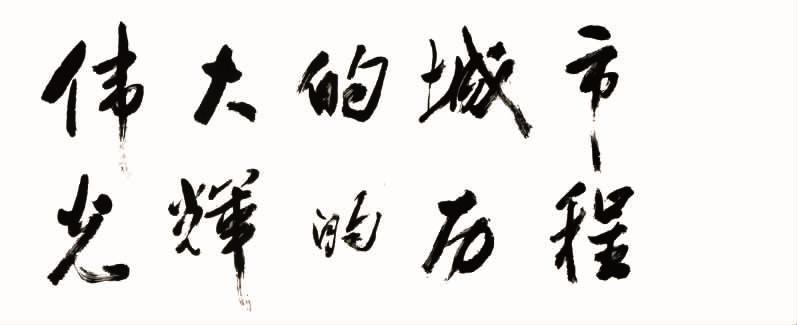 伟大的城市
光辉的历程